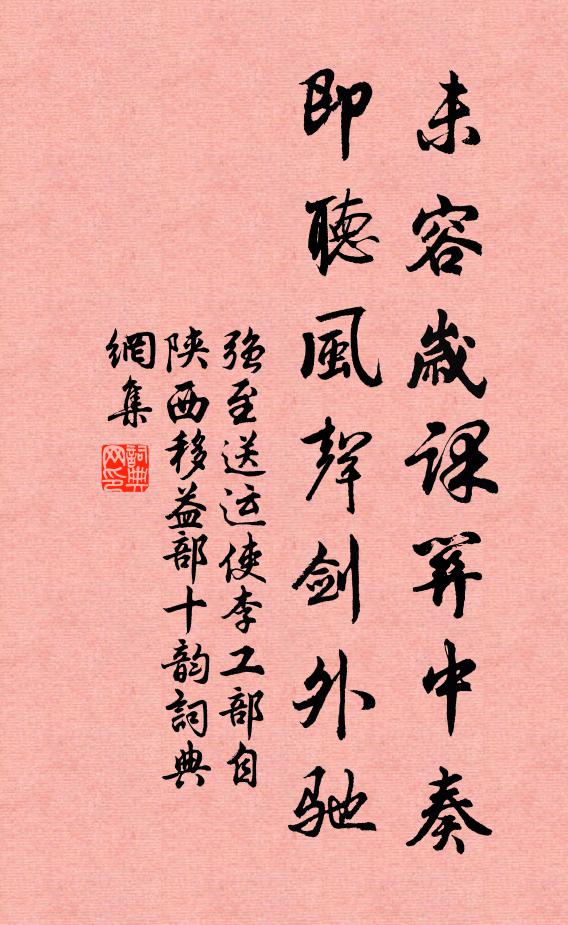 未容歲課關中奏
即聽風聲劍外馳
强至送运使李工部自
陝西移益部十韵詞典
網集
詞典
网印